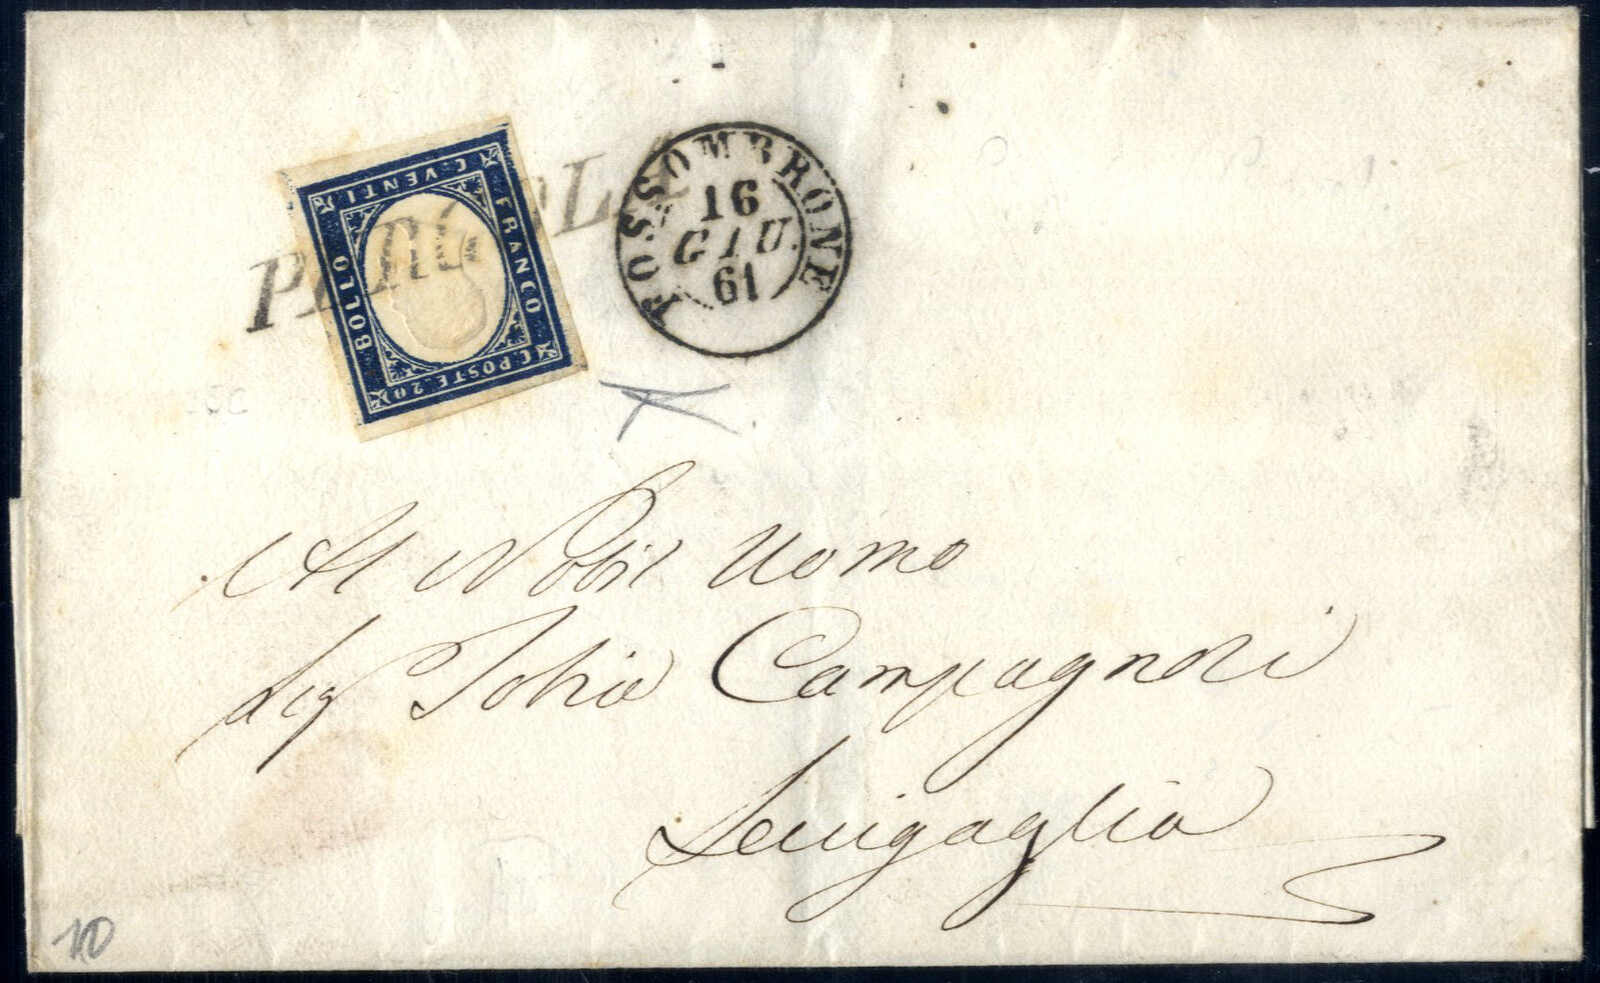 C. VENTI
FRANCO
C. POSTE. 20
BOLLO
FOSSOMBRONE
16
GIU.
61
Al Nobil Uomo
Sig Tobia Campagnoli
Senigaglia
10